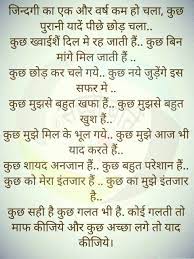 जिन्दगी का एक और वर्ष कम हो चला, कुछ
पुरानी यादें पीछे छोड़ चला..
कुछ ख्वाईशें दिल मे रह जाती हैं.. कुछ बिन
मांगे मिल जाती हैं ..
कुछ छोड़ कर चले गये.. कुछ नये जुड़ेंगे इस
सफर मे ..
कुछ मुझसे बहुत खफा हैं.. कुछ मुझसे बहुत
खुश हैं..
कुछ मुझे मिल के भूल गये.. कुछ मुझे आज भी
याद करते हैं..
कुछ शायद अनजान हैं.. कुछ बहुत परेशान हैं..
कुछ को मेरा इंतजार हैं .. कुछ का मुझे इंतजार
है..
कुछ सही है कुछ गलत भी है. कोई गलती तो
माफ कीजिये और कुछ अच्छा लगे तो याद
कीजिये।